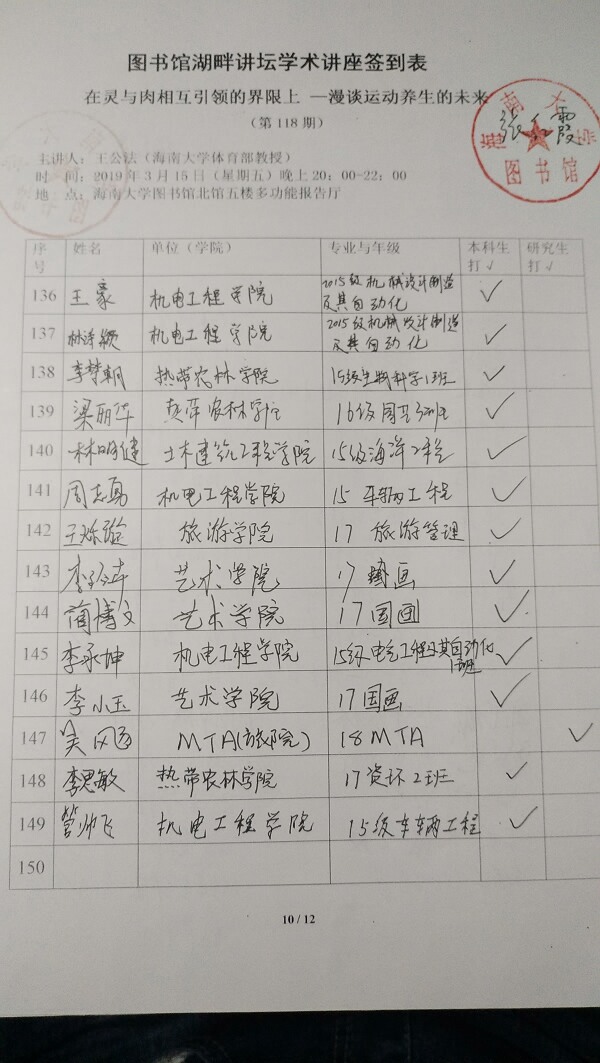 图书馆湖畔讲坛学术讲座签到表
在灵与肉相互引领的界限上 —漫谈运动养生的未来
（第 118 期）
海南大学
图书馆
主讲人：王公法（海南大学体育部教授）
时 间：2019 年 3 月 15 日（星期五）晚上 20：00-22：00
地 点：海南大学图书馆北馆五楼多功能报告厅
序号 姓名 单位（学院） 专业与年级 本科生打√ 研究生打√
136 王豪 机电工程学院 2015级机械设计制造及其自动化 √
137 机电工程学院 2015级机械设计制造及其自动化 √
138 李梦帆 热带农林学院 15级生物科学1班 √
139 梁丽华 热带农林学院 16级园艺3班 √
140 林明健 土木建筑工程学院 15级海洋工程 √
141 周志勇 机电工程学院 15 车辆工程 √
142 旅游学院 17 旅游管理 √
143 艺术学院 17 国画 √
144 蔺博文 艺术学院 17国画 √
145 李承坤 机电工程学院 15级电气工程及其自动化1班 √
146 李小玉 艺术学院 17国画 √
147 MTA(旅院) 18 MTA √
148 李思敏 热带农林学院 17资环2班 √
149 管帅飞 机电工程学院 15级车辆工程 √
150
10 / 12